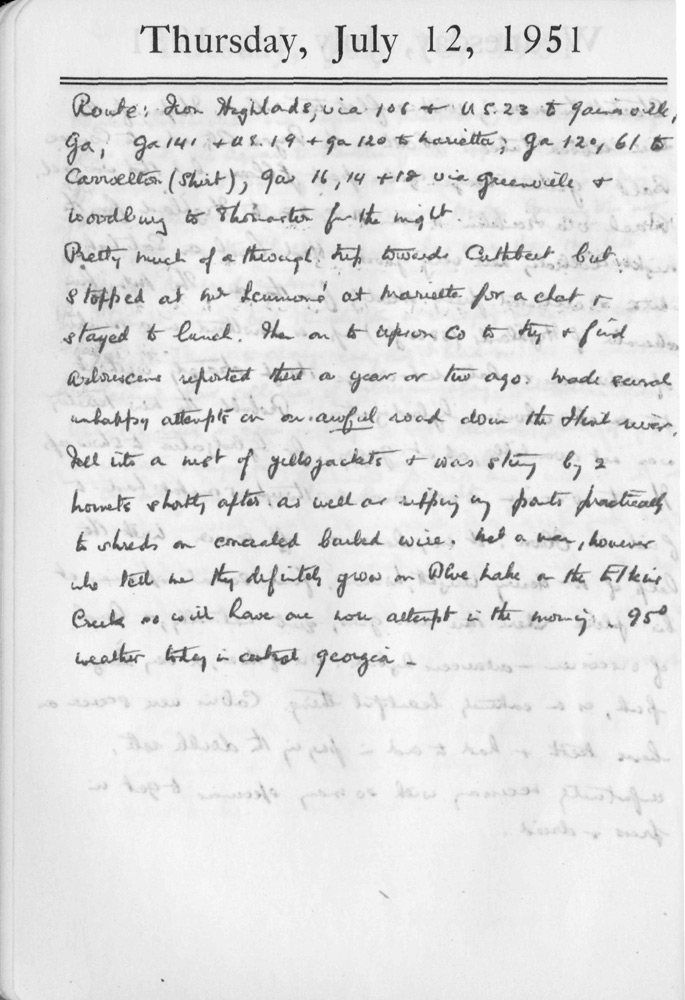 Thursday, July 12, 1951
Route: From Highlands, via 106 + U.S. 23 to Gainsville,
Ga; Ga 141 + U.S. 19 + Ga 120 to Marietta; Ga 120, 61 to
Carrollton (Shirt), Gas 16, 14 + 18 via Greenville +
Woodbury to Thomaston for the night.
Pretty much of a through trip towards Cuthbert but
stopped at Mr at Marietta for a chat +
stayed to lunch. Then on to Upson Co to try + find
arborescens reported there a year or two ago. Made several
unhappy attempts on an awful road down the Flint river.
Fell into a nest of yellojackets + was stung by 2
hornets shortly after as well as ripping my pants practically
to shreds on concealed barbed wire. Met a man, however
who tell me they definitely grow on Blue Lake on the Elkins
Creek so will have one more attempt in the morning. 95°
weather today in central Georgia -